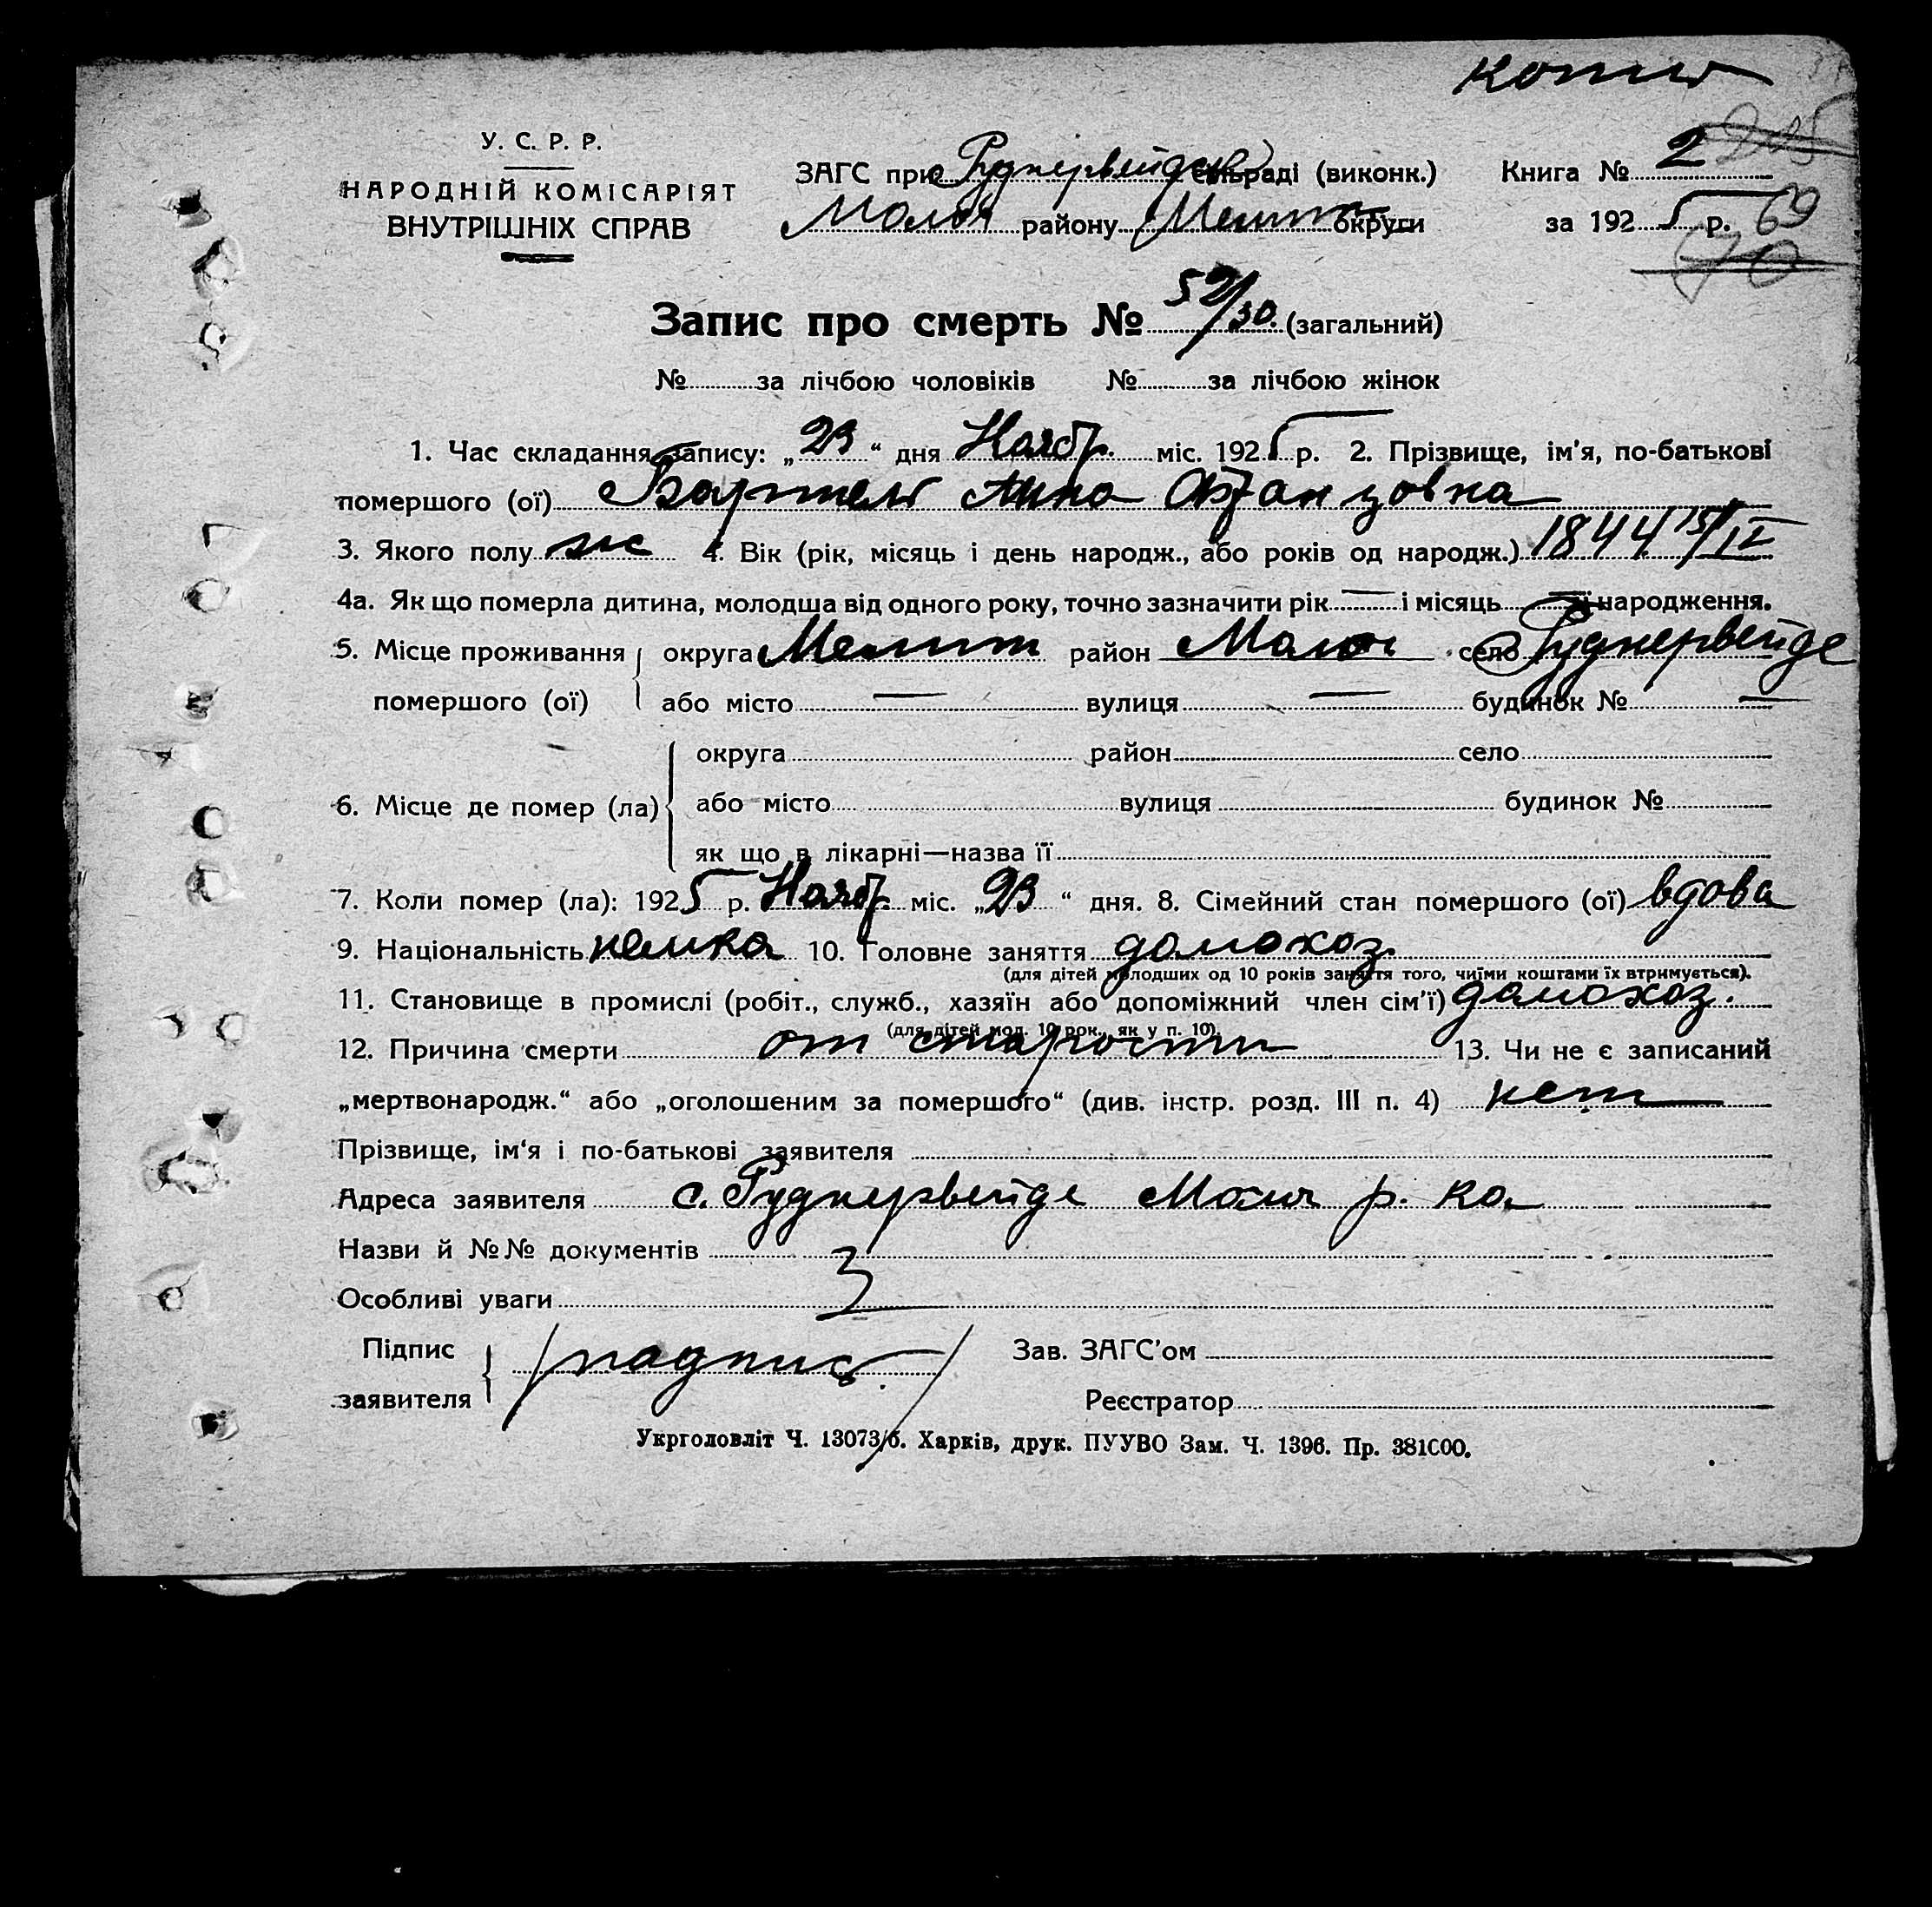 копия
У. С. Р. Р.
НАРОДНІЙ КОМІСАРІЯТ
ВНУТРІШНІХ СПРАВ
ЗАГС при Руднервейдск сільраді (виконк.)
Молоч району Мелит округи
Книга № 2
225
за 1925 р. 69
70
Запис про смерть № 59/30. (загальний)
№ за лічбою чоловіків № за лічбою жінок
1. Час складання запису: „23“ дня Ноябр. міс. 1925 р. 2. Прізвище, ім'я, по-батькові
помершого (ої) Бартель Анна Францовна
3. Якого полу ж 4. Вік (рік, місяць і день народж., або років од народж.) 1844 15/IV
4а. Як що померла дитина, молодша від одного року, точно зазначити рік — і місяць — її народження.
5. Місце проживання помершого (ої) округа Мелит район Молоч село Руднервейде
або місто — вулиця — будинок № —
6. Місце де помер (ла) округа район село
або місто вулиця будинок №
як що в лікарні—назва її
7. Коли помер (ла): 1925 р. Ноябр. міс. „23“ дня. 8. Сімейний стан помершого (ої) вдова
9. Національність немка 10. Головне заняття домохоз.
(для дітей молодших од 10 років заняття того, чиїми коштами їх втримується).
11. Становище в промислі (робіт., служб., хазяїн або допоміжний член сім'ї) домохоз.
(для дітей мол. 10 рок., як у п. 10).
12. Причина смерти от старости 13. Чи не є записаний
„мертвонародж.“ або „оголошеним за помершого“ (див. інстр. розд. III п. 4) нет
Прізвище, ім'я і по-батькові заявителя
Адреса заявителя с. Руднервейде Молоч р. на
Назви й №№ документів
Особливі уваги
Підпис заявителя /подпись/
Зав. ЗАГС'ом
Реєстратор
Укрголовліт Ч. 13073/б. Харків, друк. ПУУВО Зам. Ч. 1396. Пр. 381000.